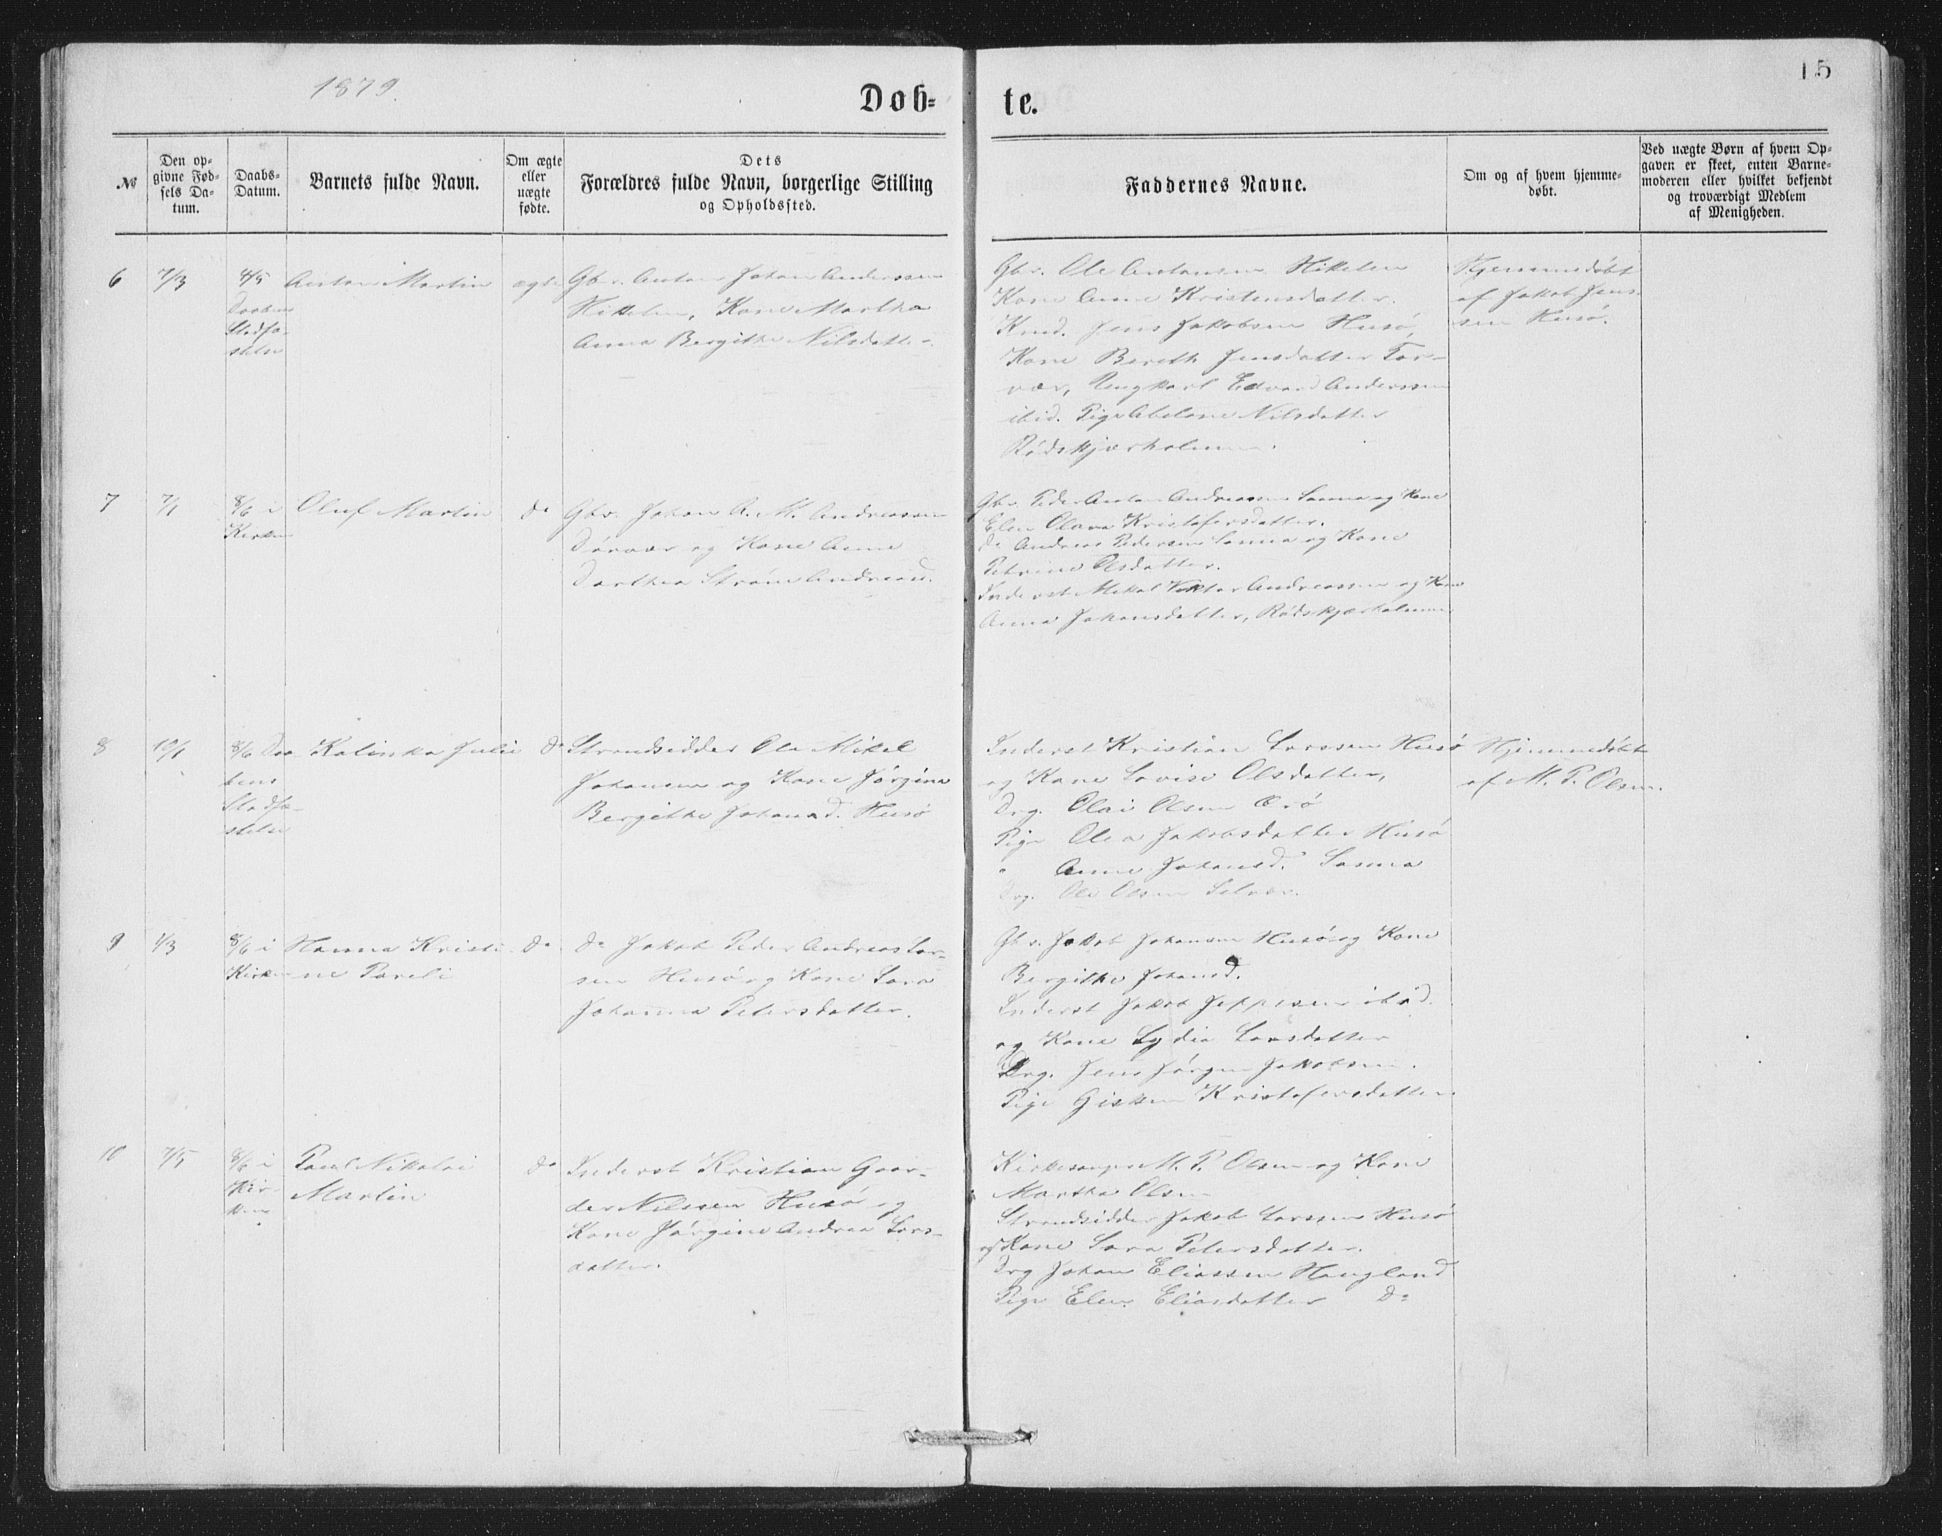 1879.
15
Dob-
te.
№
Den op-
givne Fød-
sels Da-
tum.
Daabs-
Datum.
Barnets fulde Navn.
Om ægte
eller
uægte
fødte.
Dets
Forældres fulde Navn, borgerlige Stilling
og Opholdssted.
Faddernes Navne.
Om og af hvem hjemme-
døbt.
Ved uægte Børn af hvem Op-
gaven er skeet, enten Barne-
moderen eller hvilket bekjendt
og troværdigt Medlem
af Menigheden.
6
7/3
4/5
Daabens
Stadfæ-
stelse
Anton Martin
ægte
Gbr. Anton Johan Anderssen
Kone Martha
Anna Bergithe Nilsdatter
Gbr. Ole Antonsen
Kone Anne Kristensdatter.
Jens Jakobsen Husø,
Kone Bereth Jensdatter Tor-
vær, Ungkarl Edvard Anderssen
ibid. Pige Abelone Nilsdatter
Rødskjærholmen.
Hjemmedøbt
af Jakob Jens-
sen Husø.
7
7/1
8/6 i
Kirken
Oluf Martin
do
Gbr. Johan A. M. Andreassen
og Kone Anne
Dorthea Strøm Andreasd.
Gbr. Peder Anton Andreassen Sanna og Kone
Elen Olava Kristofersdatter.
do Andreas Pedersen Sanna og Kone
Petrine Olsdatter.
Inderst Mikal Viktor Andreassen og Kone
Anna Johansdatter, Rødskjærholmen
8
10/1
8/6 Daa-
bens
Stadfæ-
stelse
Kalinka Julie
do
Strandsidder Ole Mikal
Johansen og Kone Jørgine
Bergithe Johansd. Husø
Inderst Kristian Larssen Husø
og Kone Lovise Olsdatter,
Drg. Olai Olsen
Pige Olea Jakobsdatter Husø
" Anne Johansd. Sanna
Drg. Ole Olsen Selvær.
Hjemmedøbt
af M. P. Olsen.
9
1/3
8/6 i
Kirken
Hanna Kristi-
ne Pareli
do
do Jakob Peder Andreas Lar-
sen Husø og Kone Sara
Johanna Petersdatter.
Gbr. Jakob Johansen Husø og Kone
Bergithe Johansd.
Inderst Jakob Jeppesen ibid.
og Kone Lydia Larsdatter
Drg. Jens Jørgen Jakobsen.
Pige Gisken Kristofersdatter
10
7/5
8/6 i
Kir-
ken
Paul Nikolai
Martin
do
Inderst Kristian Gaar-
der Nilssen Husø og
Kone Jørgine Andrea Lars-
datter.
Kirkesanger M. P. Olsen og Kone
Martha Olsen
Strandsidder Jakob Larssen Husø
og Kone Sara Petersdatter.
Drg Johan Eliassen Haugland
Pige Elen Eliasdatter do